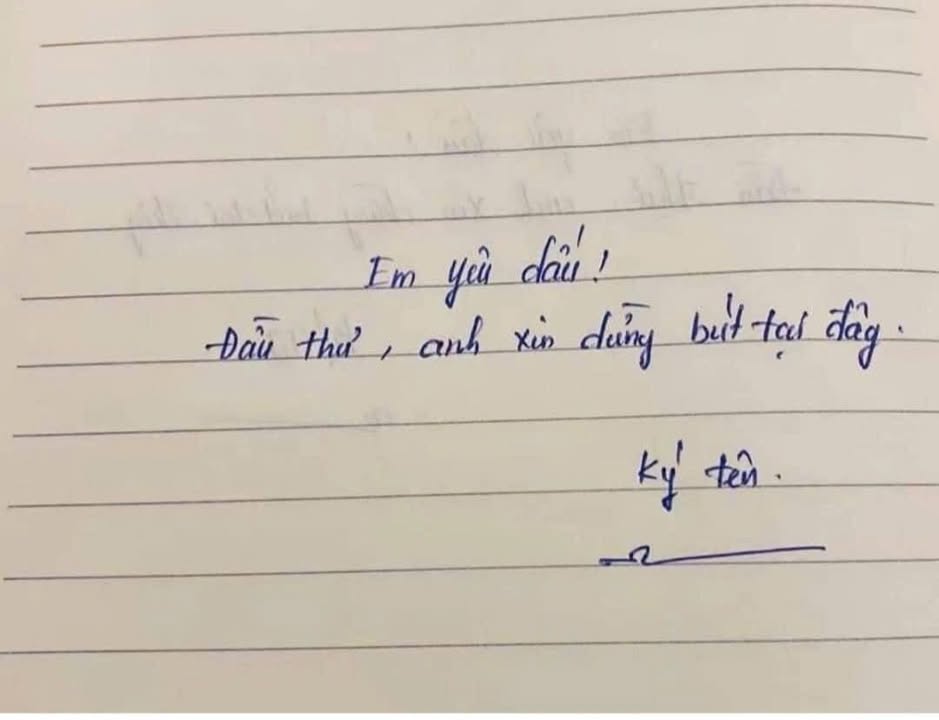 Em yêu dấu!
Đầu thư, anh xin dừng bút tại đây.
Ký tên.